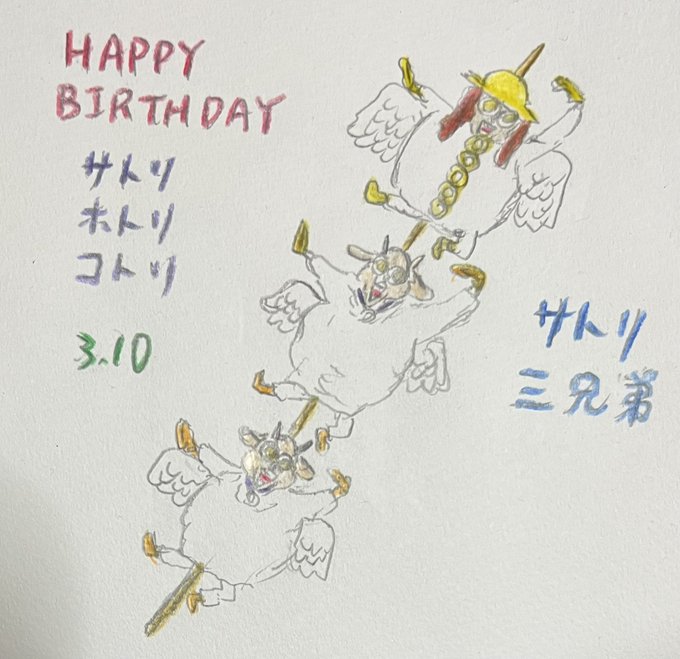 HAPPY
BIRTHDAY
サトリ
ホトリ
コトリ
3.10
サトリ
三兄弟